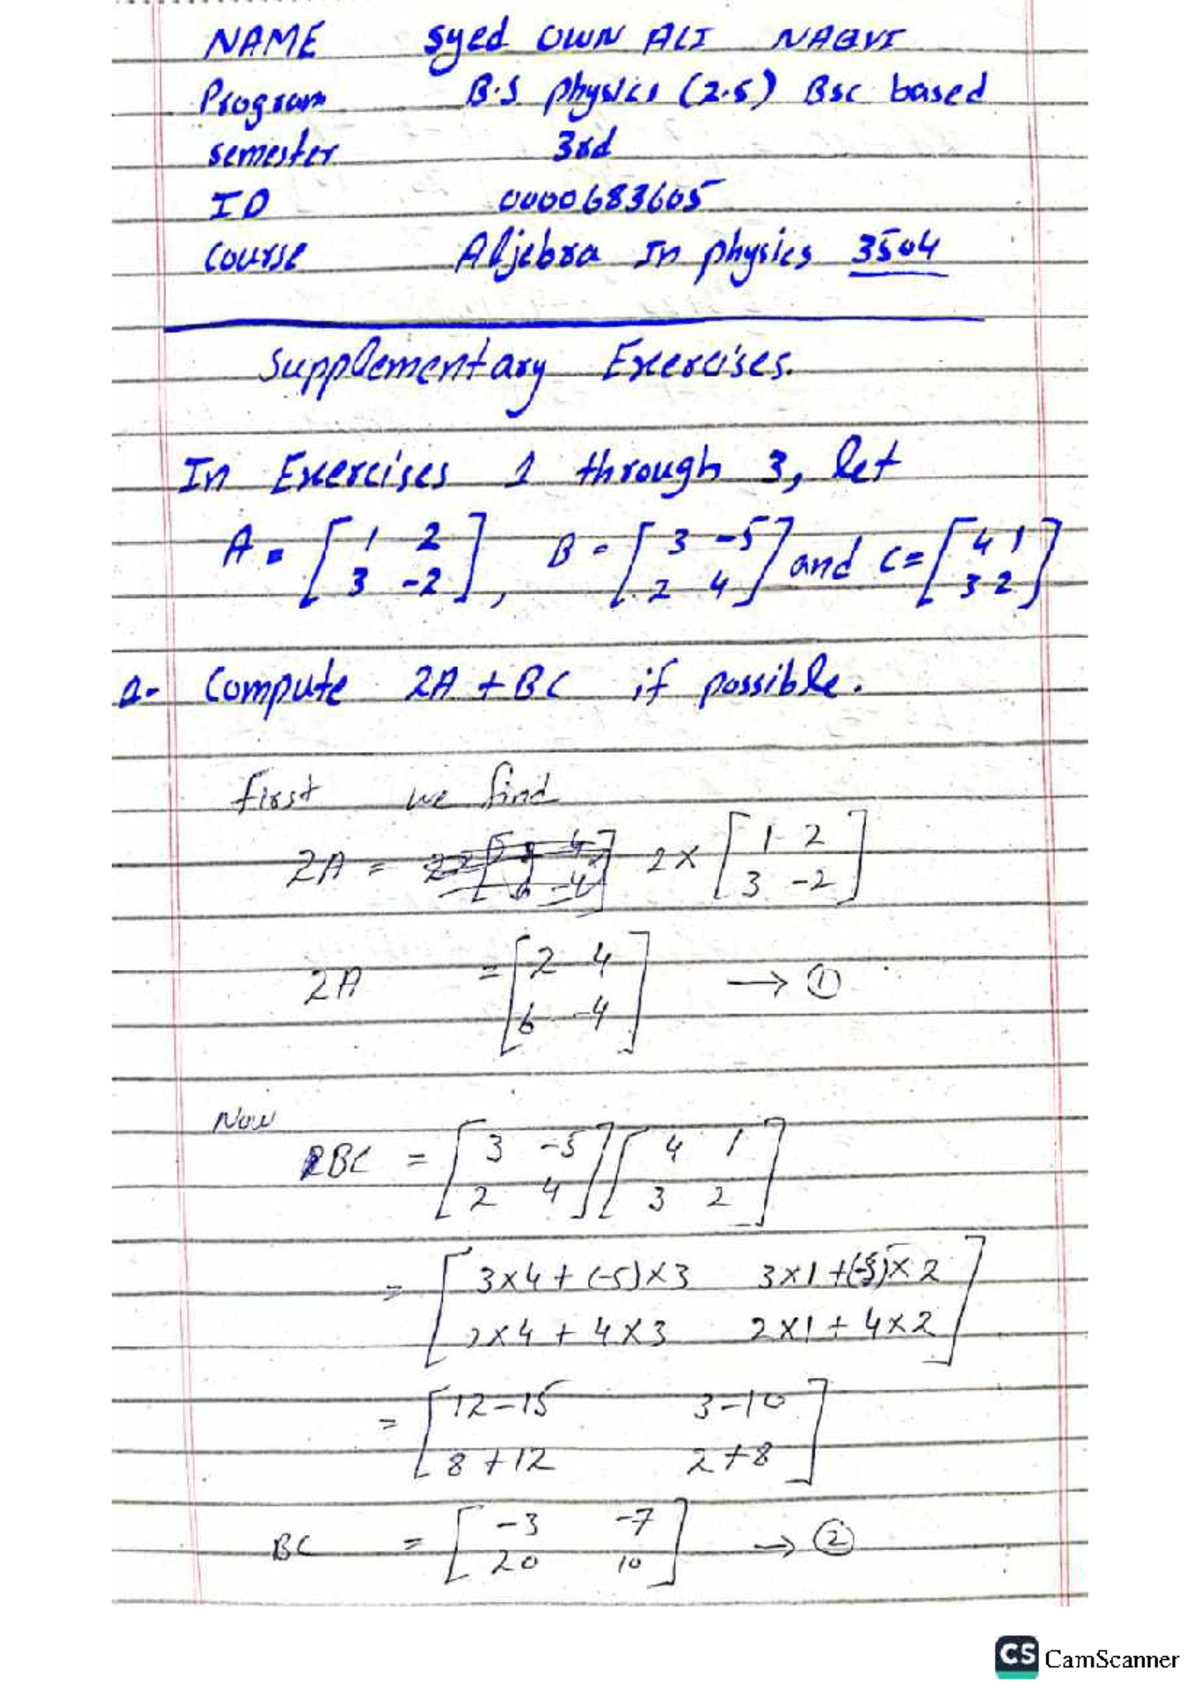 NAME Syed OWN ALI NAQVI
Program B.S physics (2.5) Bsc based
semester 3rd
ID 0000683605
course Aljebra In physics 3504
Supplementary Exercises.
In Exercises 1 through 3, let
A = [1 2; 3 -2], B = [3 -5; 2 4] and C = [4 1; 3 2]
a- Compute 2A + BC if possible.
first we find
2A = 2 x [1 2; 3 -2]
2A = [2 4; 6 -4] → ①
Now
BC = [3 -5; 2 4] [4 1; 3 2]
= [3x4 + (-5)x3 3x1 + (-5)x2; 2x4 + 4x3 2x1 + 4x2]
= [12-15 3-10; 8+12 2+8]
BC = [-3 -7; 20 10] → ②
CS CamScanner